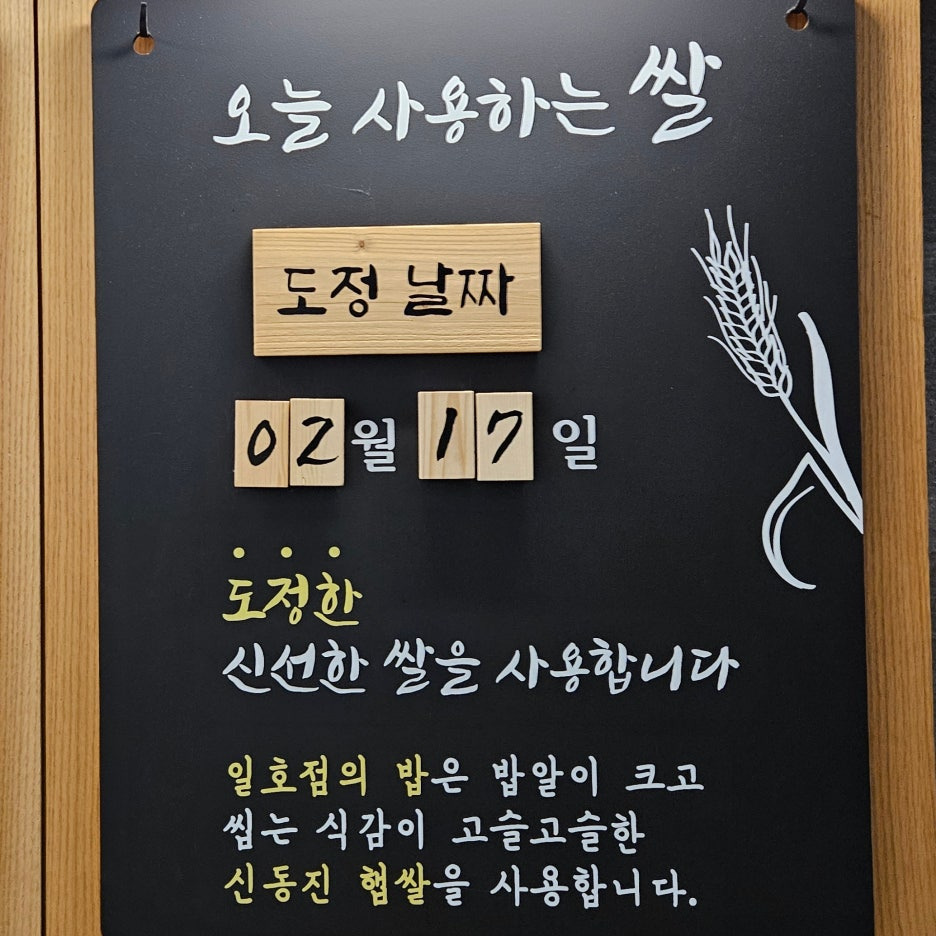 오늘 사용하는 쌀
도정 날짜
02월 17일
도정한
신선한 쌀을 사용합니다
일호점의 밥은 밥알이 크고
씹는 식감이 고슬고슬한
신동진 햅쌀을 사용합니다.